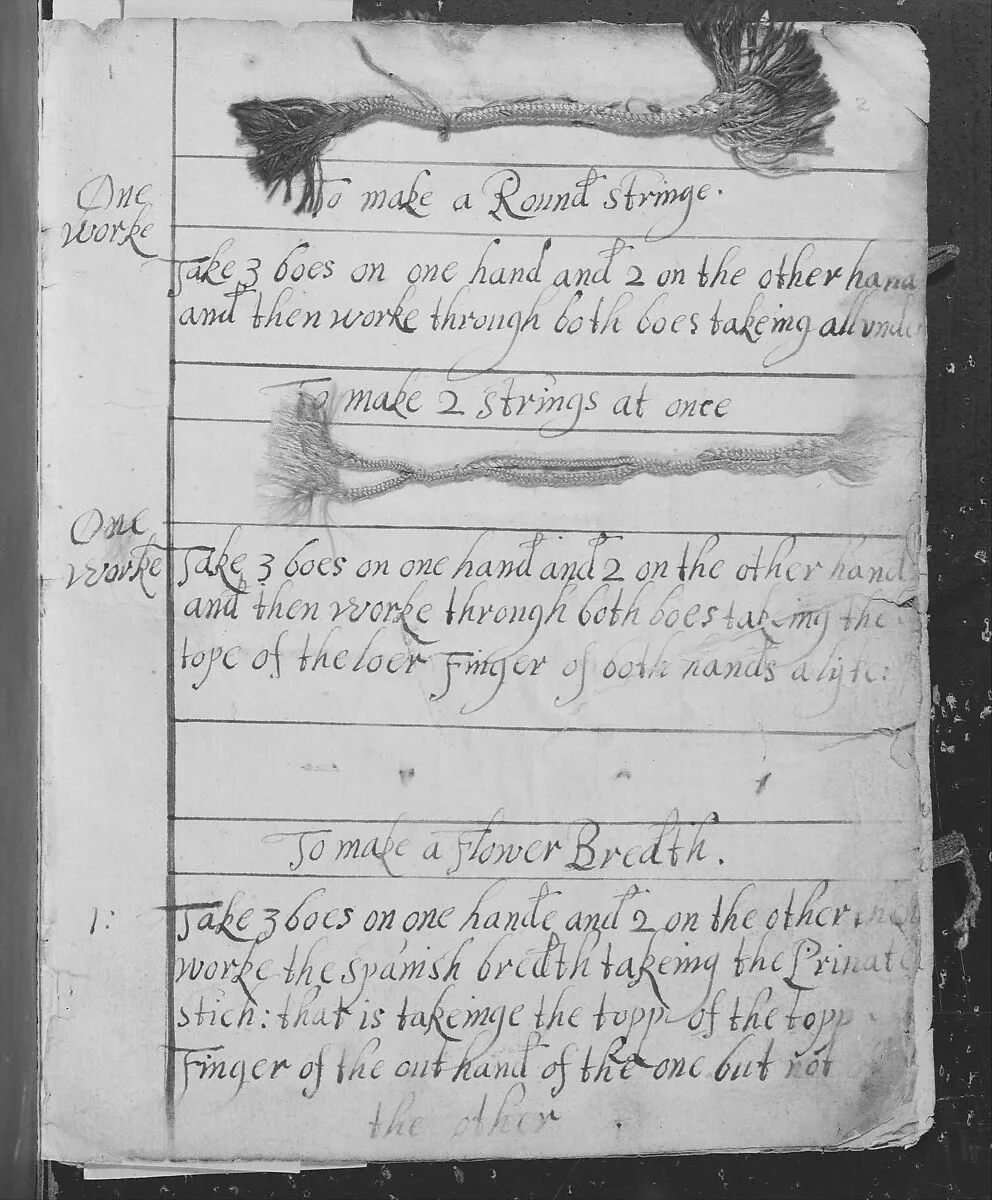 2
One
worke
To make a Round stringe.
Take 3 boes on one hand and 2 on the other hand
and then worke through both boes takeing all vnder
To make 2 strings at once
One
worke
Take 3 boes on one hand and 2 on the other hand
and then worke through both boes takeing the
tope of the loer Finger of both hands alyke:
To make a Flower Bredth.
1:
Take 3 boes on one hande and 2 on the other
worke the spanish bredth takeing the Priuat
stich: that is takeinge the topp of the topp
Finger of the out hand of the one but not
the other